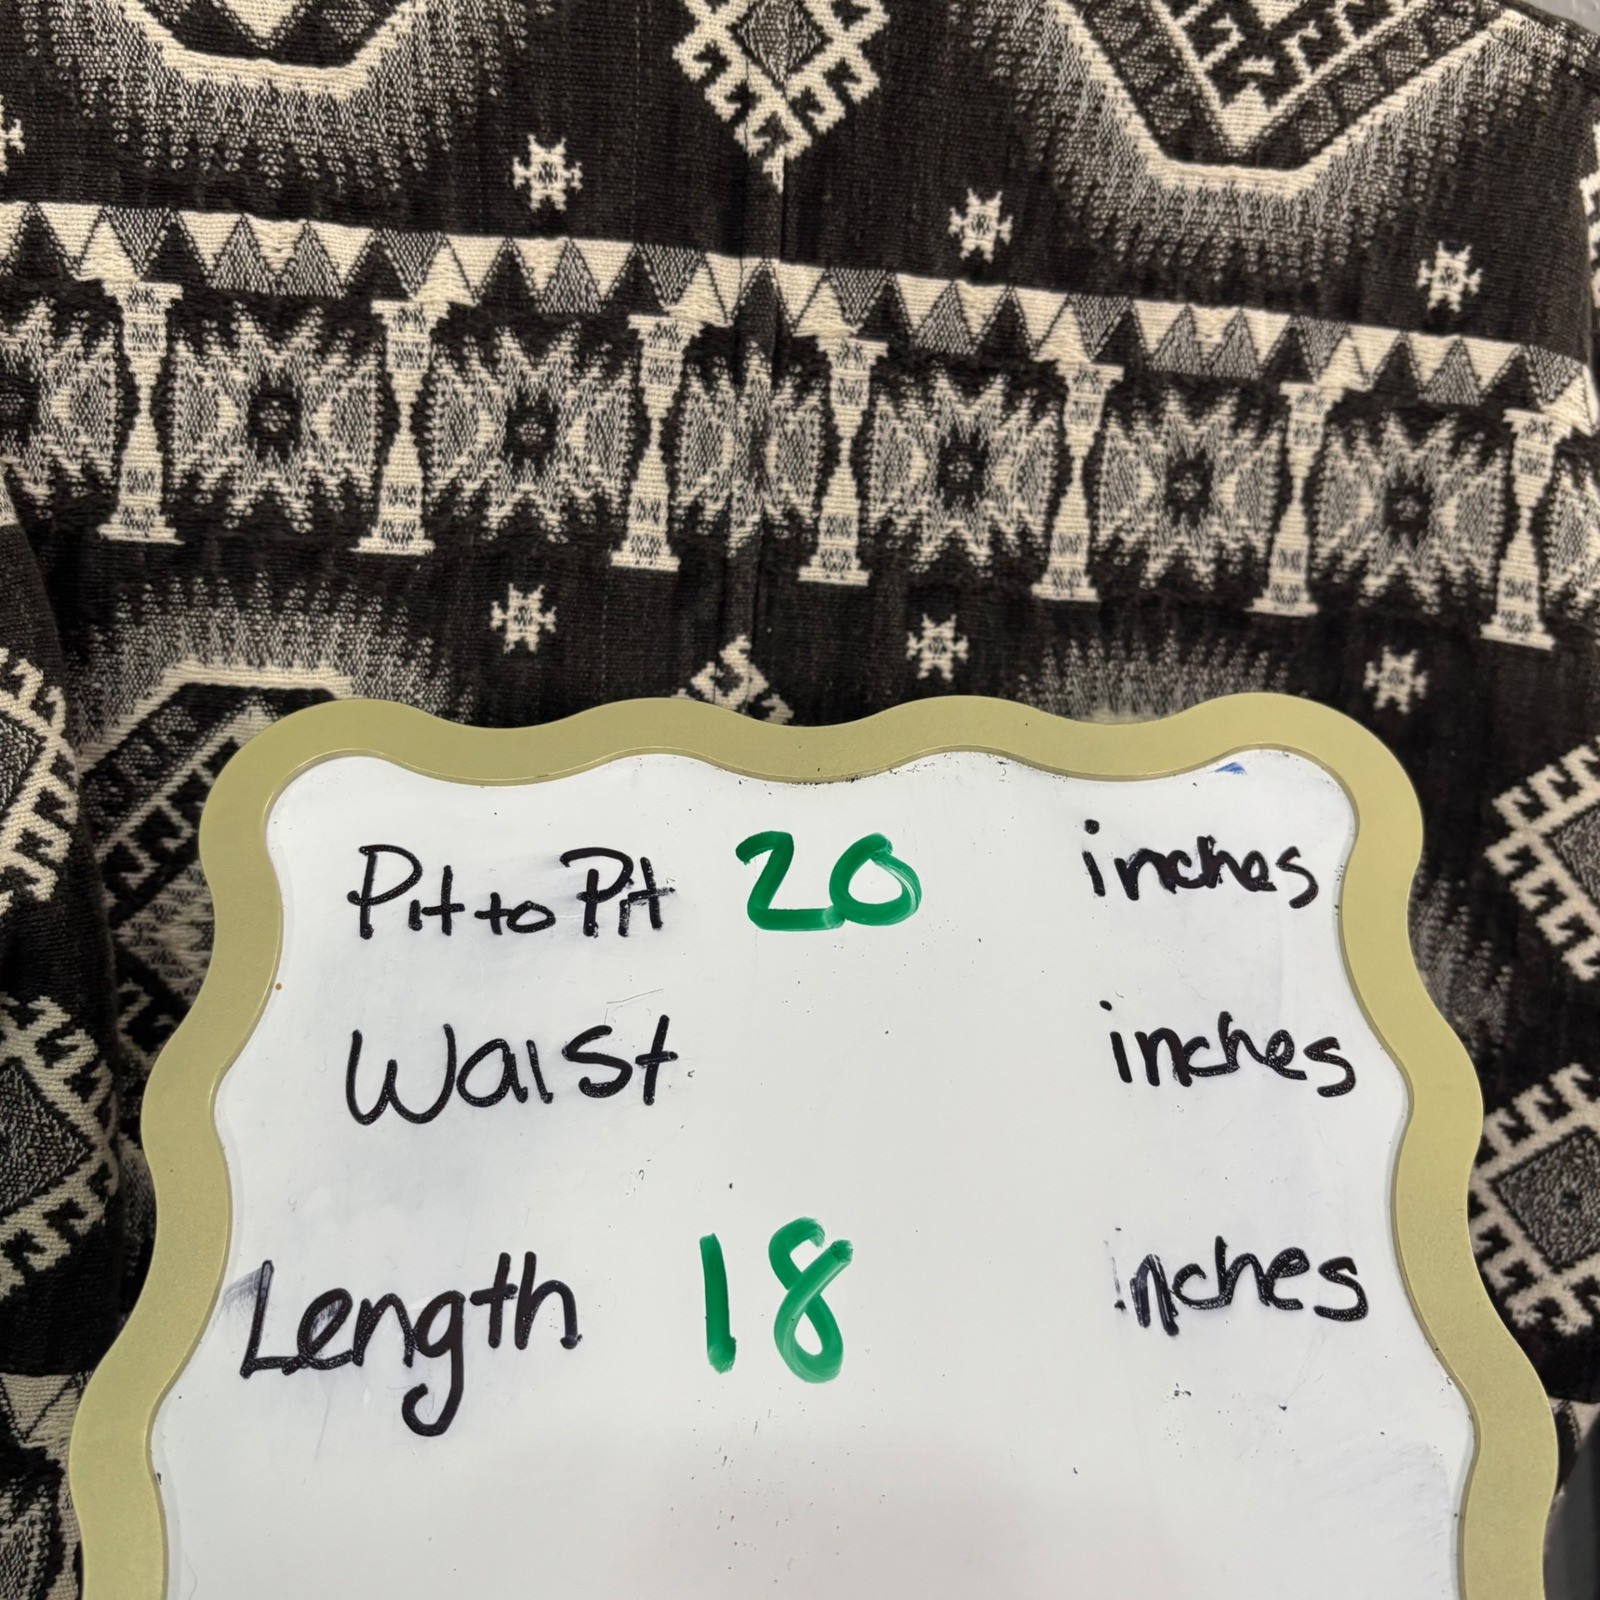 Pit to Pit 20 inches
Waist inches
Length 18 inches